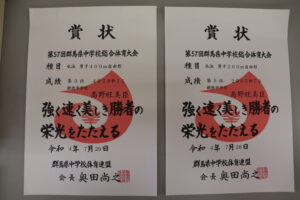 賞状
第57回群馬県中学校総合体育大会
種目 水泳 男子400m自由形
成績 第3位
強く速く美しき勝者の
栄光をたたえる
令和4年7月28日
群馬県中学校体育連盟
会長 奥田尚之
賞状
第57回群馬県中学校総合体育大会
種目 水泳 男子200m自由形
成績 第3位
強く速く美しき勝者の
栄光をたたえる
令和4年7月28日
群馬県中学校体育連盟
会長 奥田尚之